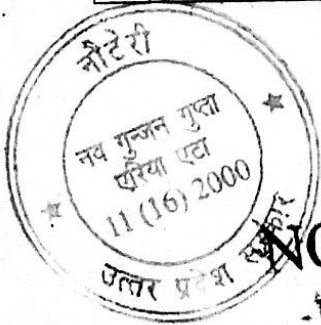 नौटेरी
नव गुन्जन गुप्ता
एरिया एटा
11 (16) 2000
उत्तर प्रदेश सरकार
NO